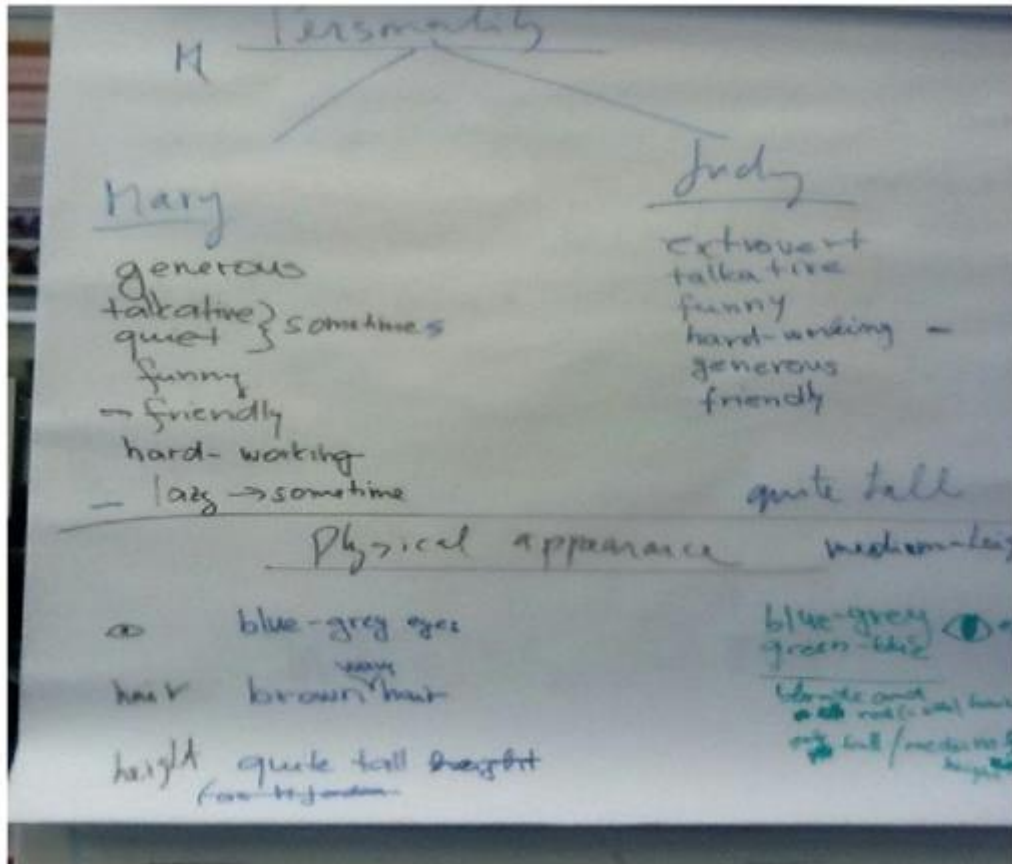 Personality
M
Mary
generous
talkative } sometimes
quiet
funny
- friendly
hard-working
- lazy → sometime
Judy
extrovert
talkative
funny
hard-working -
generous
friendly
quite tall
Physical appearance
medium-heig
blue-grey eyes
hair brown wavy hair
height quite tall height
blue-grey
green-blue
blonde and
red
tall / medium
height